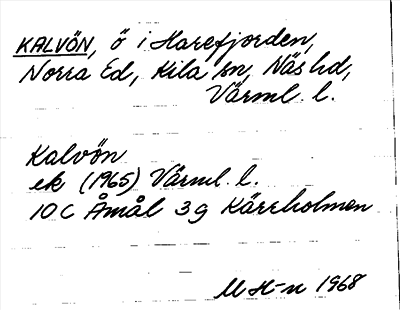 KALVÖN, ö i Harefjorden,
Norra Ed, Kila sn, Näs hd,
Värml. l.
Kalvön
ek (1965) Värml. l.
10 C Åmål 3 g Kärrholmen
M H-n 1968